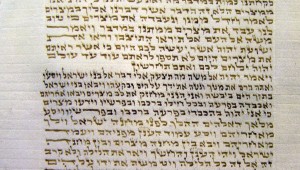 לקחתנו למות במדבר
ממצרים הלא זה הדבר אשר דברנו אליך במצרים
לאמר חדל ממנו ונעבדה את מצרים כי טוב לנו
עבד את מצרים ממתנו במדבר ויאמר משה
אל העם אל תיראו התיצבו וראו את
ישועת יהוה אשר יעשה לכם היום כי אשר ראיתם
את מצרים היום לא תספו לראתם עוד עד עולם
יהוה ילחם לכם ואתם תחרישון
ויאמר יהוה אל משה מה תצעק אלי דבר אל בני ישראל ויסעו
ואתה הרם את מטך ונטה את ידך על הים ובקעהו ויבאו בני ישראל
בתוך הים ביבשה ואני הנני מחזק את לב מצרים ויבאו אחריהם
ואכבדה בפרעה ובכל חילו ברכבו ובפרשיו וידעו מצרים
כי אני יהוה בהכבדי בפרעה ברכבו ובפרשיו ויסע מלאך
האלהים ההלך לפני מחנה ישראל וילך
מאחריהם ויסע עמוד הענן מפניהם ויעמד
מאחריהם ויבא בין מחנה מצרים ובין מחנה
ישראל ויהי הענן והחשך ויאר את הלילה ולא
קרב זה אל זה כל הלילה ויט משה את ידו על הים